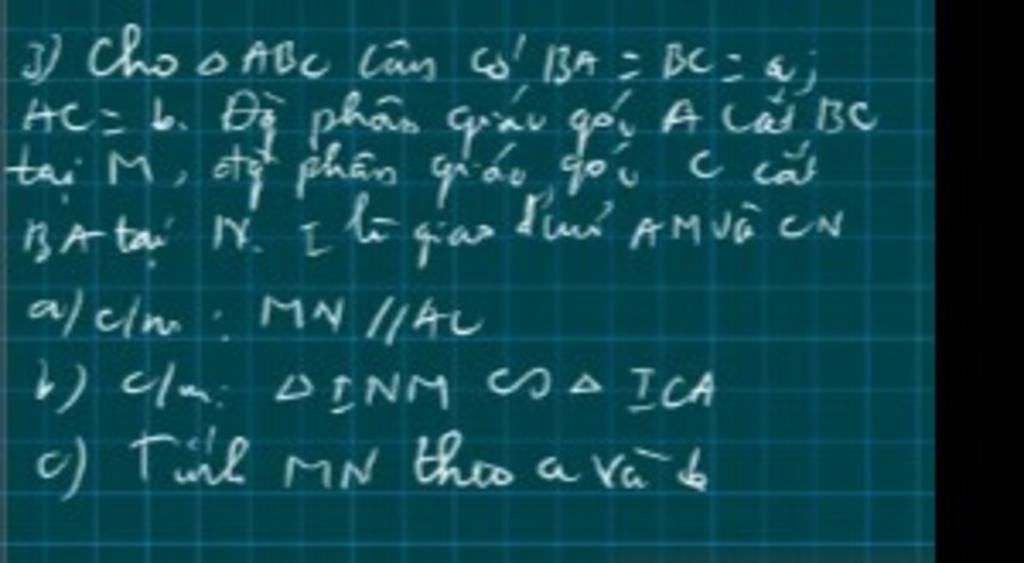 3) Cho △ABC cân có BA = BC = a;
AC = b. Đg phân giác góc A cắt BC
tại M, đg phân giác góc C cắt
BA tại N. I là giao điểm AM và CN
a) c/m : MN // AC
b) c/m: △INM ∽ △ICA
c) Tính MN theo a và b